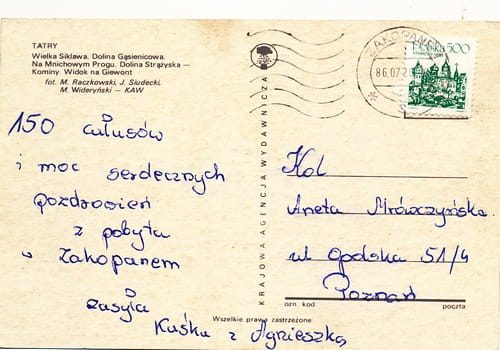 TATRY
Wielka Siklawa. Dolina Gąsienicowa.
Na Mnichowym Progu. Dolina Strążyska —
Kominy. Widok na Giewont
fot. M. Raczkowski, J. Siudecki,
M. Wideryński — KAW
150 całusów
i moc serdecznych
pozdrowień
z pobytu
w Zakopanem
zasyła
Kaśka z Agnieszką
KRAJOWA AGENCJA WYDAWNICZA
ZAKOPANE
86.07.2
Polska 500
Kol
Aneta Mrówczyńska
ul Opolska 51/4
Poznań
ozn. kod poczta
Wszelkie prawa zastrzeżone